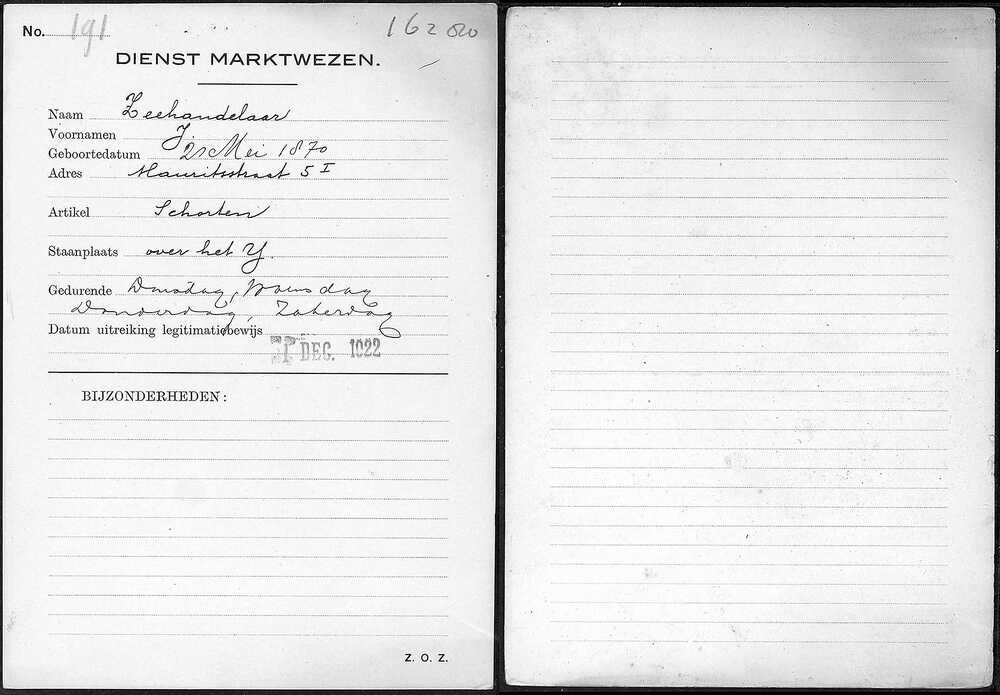 No. 191 162020
DIENST MARKTWEZEN.
Naam Zeehandelaar
Voornamen J.
Geboortedatum 21 Mei 1870
Adres Mauritsstraat 5 I
Artikel Schorten
Staanplaats over het Y.
Gedurende Dinsdag, Woensdag
Donderdag, Zaterdag
Datum uitreiking legitimatiebewijs
DEC. 1922
BIJZONDERHEDEN:
Z. O. Z.